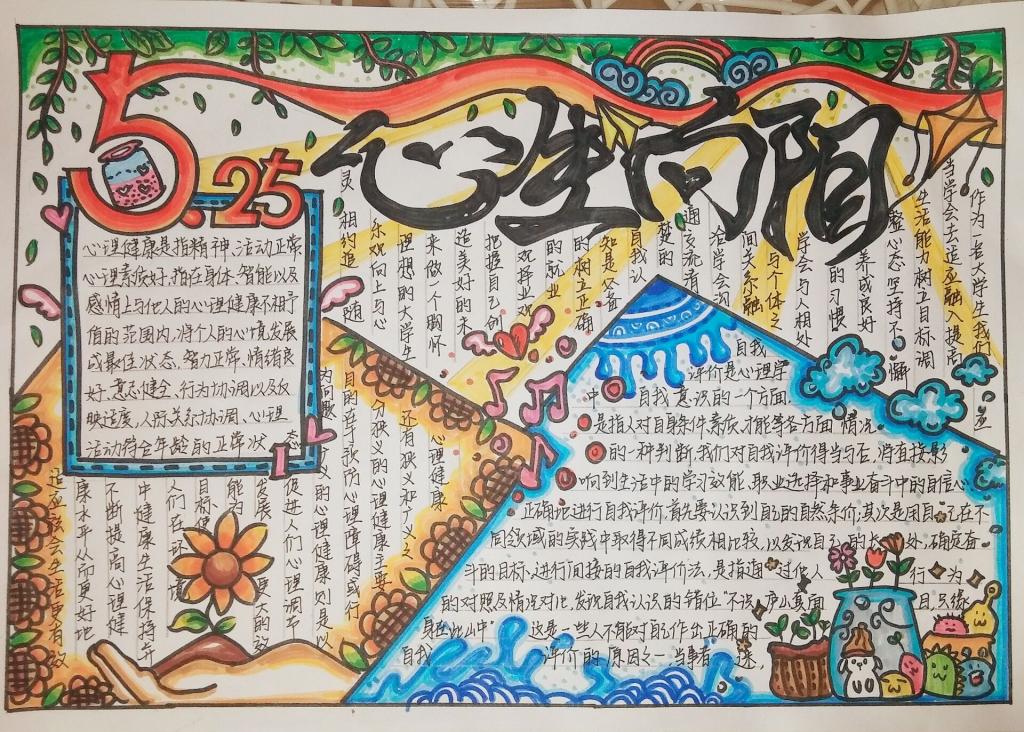 5.25
心生向阳
心理健康是指精神、活动正常、
心理素质好,指在身体、智能以及
感情上与他人的心理健康不相予
值的范围内,将个人的心境发展
成最佳状态,智力正常,情绪良
好,意志健全,行为协调以及反
映适度,人际关系协调、心理
活动符合年龄的正常状
态
作为一名大学生我们应
当学会去适应融入提高
生活能力树立目标调
整心态坚持不懈
养成良好
的习惯
学会与人相处
与个体之
间关系融
洽学会沟
通交流有
楚的
自我认
知是必备
的树立正确
的就业
观择业观
把握自己创
造美好的未
来做一个胸怀
理想的大学生
乐观向上与心
灵
相约追
随
心理健康
还有狭义和广义之
分狭义的心理健康主要
目的在于预防心理障碍或行
为问题
广义的心理健康则是以
促进人们心理调节
发展
更大的效
能为
目标使
人们在环境
中健康生活保持并
不断提高心理健
康水平从而更好地
适应社会生活更有效
自我
评价是心理学
中 自我意识的一个方面
是指人对自身条件素质、才能等各方面 情况
的一种判断,我们对自我评价得当与否,将直接影
响到生活中的学习效能,职业选择和事业奋斗中的自信心
正确地进行自我评价,首先要认识到自己的自然条价,其次是用自己在不
同领域的实践中取得不同成绩相比较,以发现自己的长处,确定奋
斗的目标,以进行间接的自我评价法,是指通过他人 行为
的对照及情况对比,发现自我认识的错位"不识庐山真面 目,只缘
身在此山中" 这是一些人不能对自己作出正确的
自我 评价的原因之一 当事者 迷,